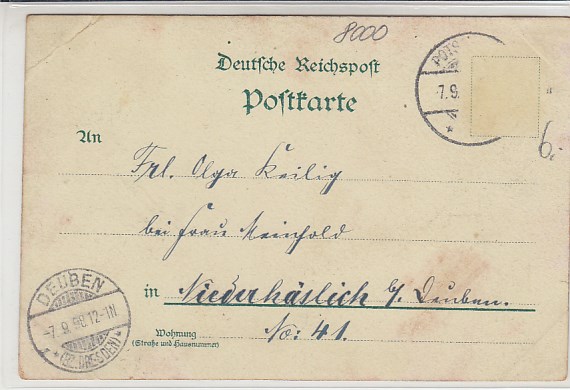 8000
Deutsche Reichspost
Postkarte
POTS
7.9.
An
6.
Frl. Olga Keilig
bei Frau Meinhold
in Niederhäslich b/. Deuben.
No: 41.
Wohnung
(Straße und Hausnummer)
DEUBEN
-7.9.98.12-1N
(BZ. DRESDEN)